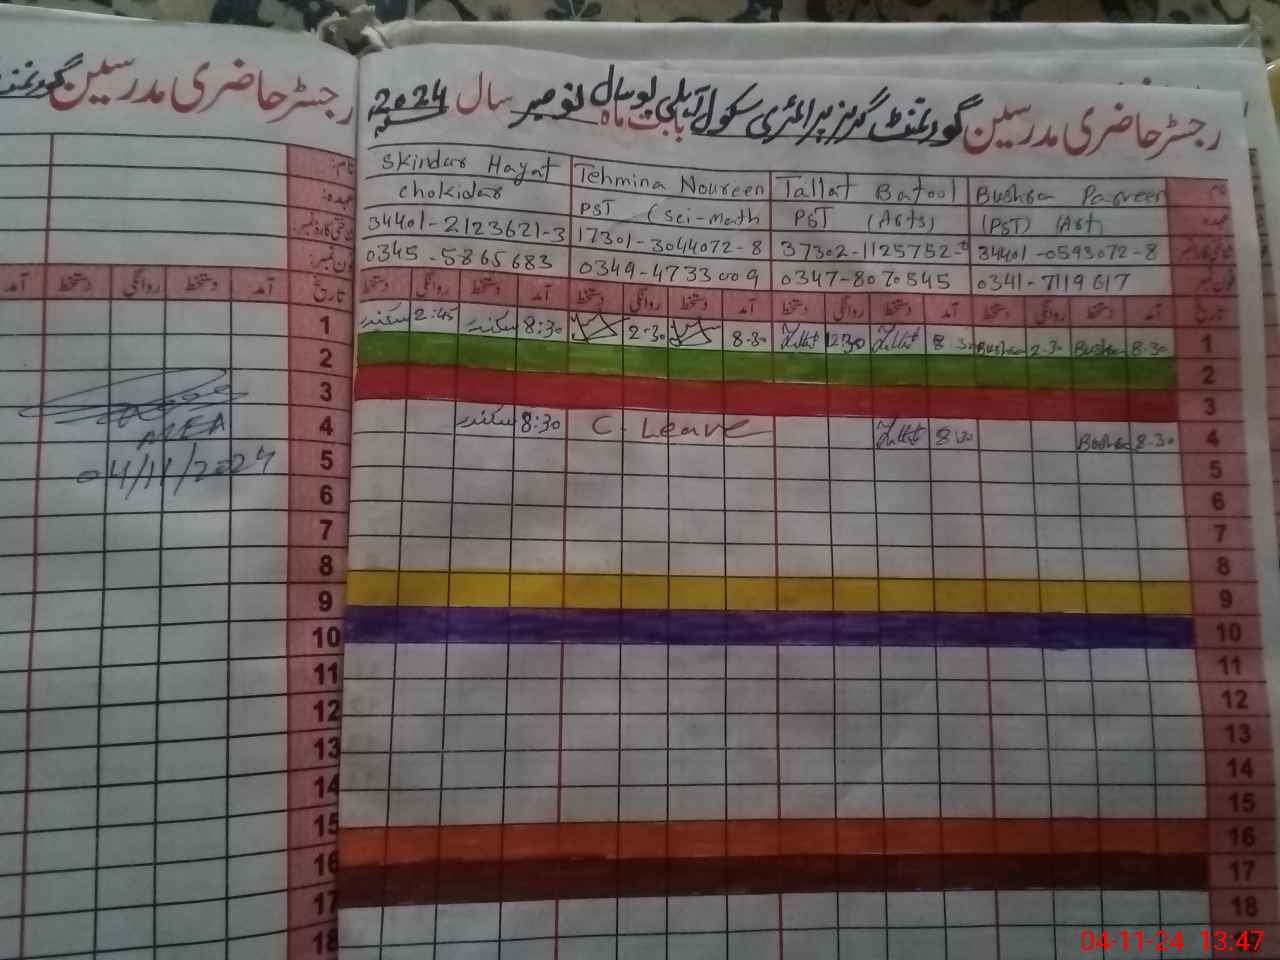 رجسٹر حاضری مدرسین گورنمنٹ گرلز پرائمری سکول بابت ماہ نومبر سال 2024
نام: Bushra Parveen Tallat Batool Tehmina Noureen Skindar Hayat
عہدہ: (PST) (Art) PST (Arts) PST (Sci-math chokidar
34401-0593072-8 37302-1125752- 17301-3044072-8 34401-2123621-3
فون نمبر: 0341-7119617 0347-8070545 0349-4733009 0345-5865683
تاریخ آمد دستخط روانگی دستخط آمد دستخط روانگی دستخط آمد دستخط روانگی دستخط آمد دستخط روانگی دستخط
1 8-30 Bushra 2-30 Bushra 8-30 Tallat 12-30 Tallat 8-30 2-30 8:30 سکندر 2:45 سکندر
2
3
4 8-30 Bushra 8-30 Tallat C. Leave 8:30 سکندر
5
6
7
8
9
10
11
12
13
14
15
16
17
18
رجسٹر حاضری مدرسین گورنمنٹ
نام:
عہدہ:
شناختی کارڈ نمبر:
فون نمبر:
تاریخ آمد دستخط روانگی دستخط آمد
1
2
3
4
5
6
7
8
9
10
11
12
13
14
15
16
17
18
MEA
04/11/2024
04-11-24 13:47